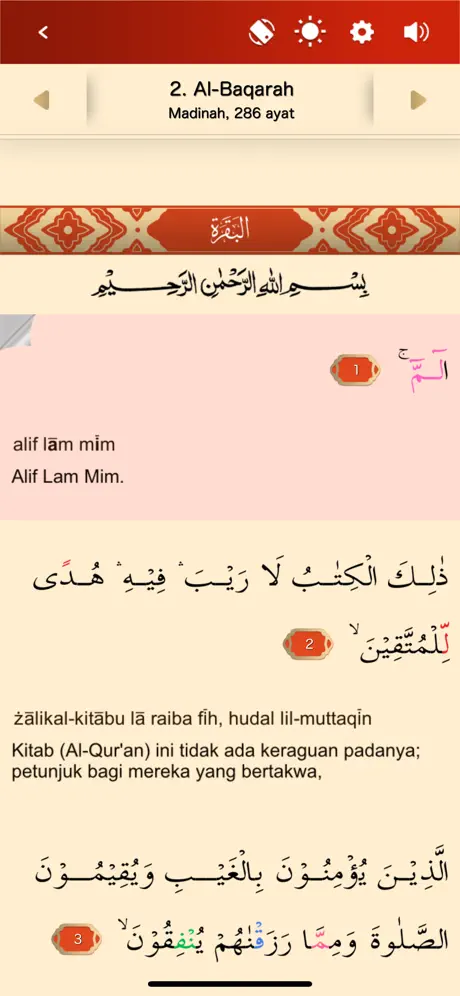 2. Al-Baqarah
Madinah, 286 ayat
البقرة
بِسْمِ اللّٰهِ الرَّحْمٰنِ الرَّحِيْمِ
الۤمّۤ ۚ 1
alif lām mīm
Alif Lam Mim.
ذٰلِكَ الْكِتٰبُ لَا رَيْبَ ۛ فِيْهِ ۛ هُدًى
لِّلْمُتَّقِيْنَ ۙ 2
żālikal-kitābu lā raiba fīh, hudal lil-muttaqīn
Kitab (Al-Qur'an) ini tidak ada keraguan padanya;
petunjuk bagi mereka yang bertakwa,
الَّذِيْنَ يُؤْمِنُوْنَ بِالْغَيْبِ وَيُقِيْمُوْنَ
الصَّلٰوةَ وَمِمَّا رَزَقْنٰهُمْ يُنْفِقُوْنَ ۙ 3